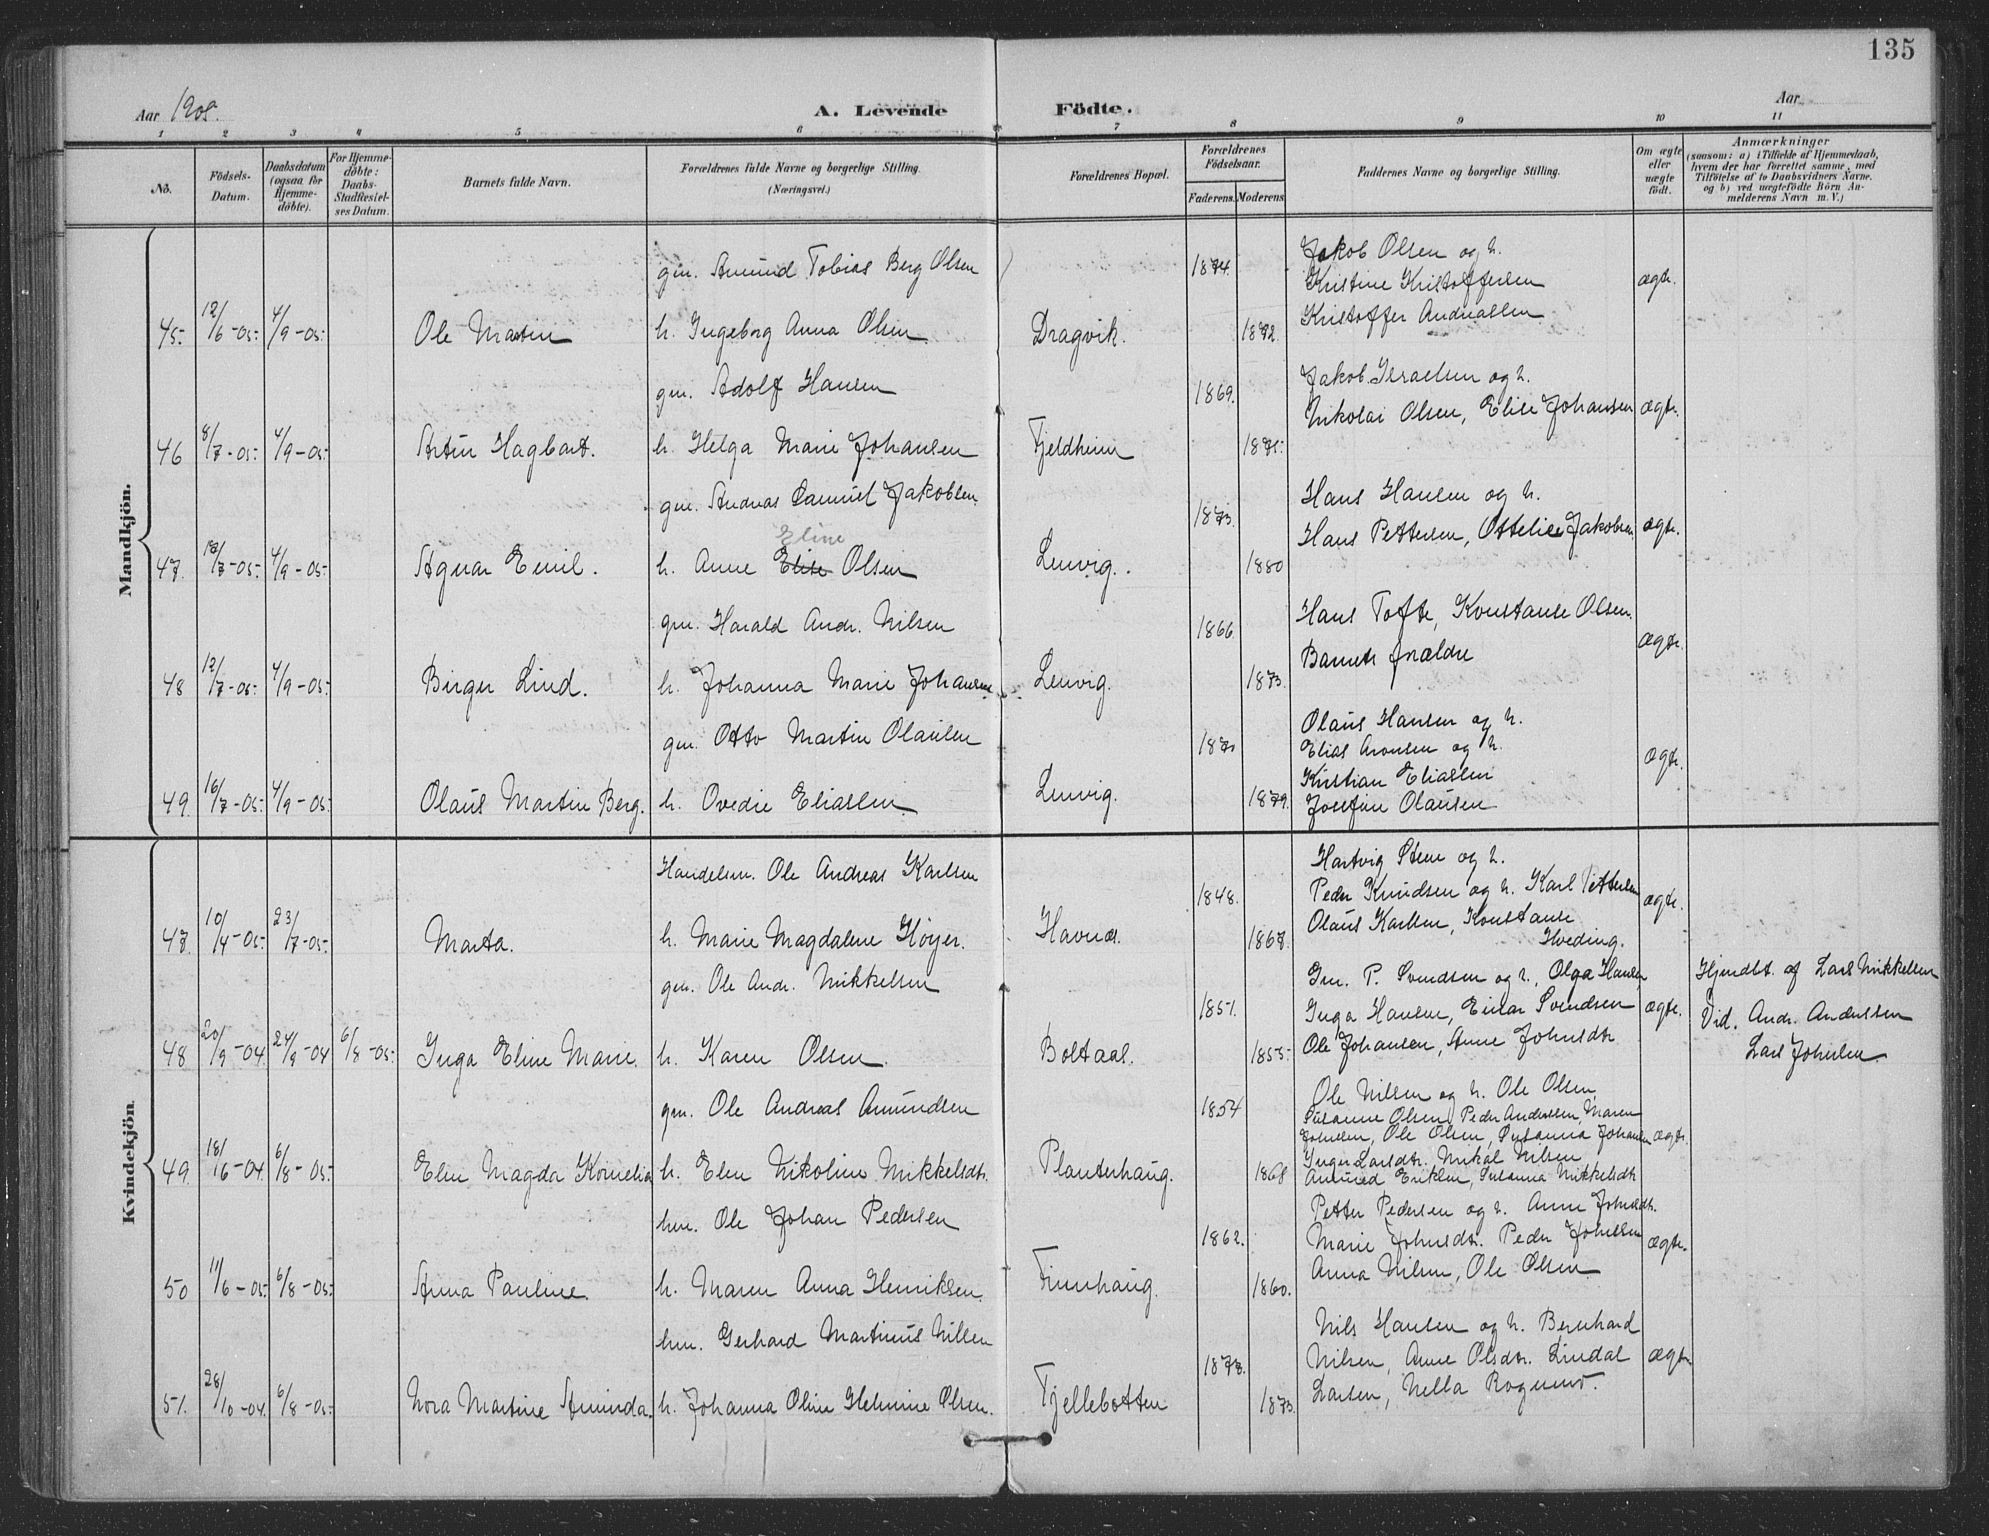 135
Aar 1905.
A. Levende Födte.
Aar
1 2 3 4 5 6 7 8 9 10 11
No.
Födsels-Datum.
Daabsdatum (ogsaa for Hjemme-döbte).
For Hjemme-döbte: Daabs-Stadfæstel-ses Datum.
Barnets fulde Navn.
Forældrenes fulde Navne og borgerlige Stilling. (Næringsvei.)
Forældrenes Bopæl.
Forældrenes Födselsaar.
Faderens. Moderens
Faddernes Navne og borgerlige Stilling.
Om ægte eller uægte födt.
Anmærkninger
(saasom: a) i Tilfælde af Hjemmedaab,
hvem der har forrettet samme, med
Tilföielse af to Daabsvidners Navne.
og b) ved uægtefödte Börn An-
melderens Navn m. V.)
Mandkjön.
gm. Amund Tobias Berg Olsen 1874. Jakob Olsen og h.
Kristine Kristoffersen ægte.
45. 12/6-05. 4/9-05. Ole Martin h. Ingeborg Anna Olsen Dragvik. 1872. Kristoffer Andreassen
gm. Adolf Hansen 1869. Jakob Israelsen og h.
Nikolai Olsen, Elise Johansen ægte.
46 8/7-05. 4/9-05. Artur Hagbart. h. Helga Marie Johansen Fjeldheim 1875.
gm. Andreas Samuel Jakobsen 1873. Hans Hansen og h.
Eline
Hans Pettersen, Ottelie Jakobsen ægte.
47. 12/7-05. 4/9-05. Agnar Emil. h. Anne Elise Olsen Lenvig. 1880
gm. Harald Andr. Nilsen 1866 Hans Tofte, Konstanse Olsen.
ægte.
48 12/7-05. 4/9-05. Birger Lind. h. Johanna Marie Johansen Lenvig. 1873. Barnets forældre
gm. Otto Martin Olausen 187 Olaus Hansen og h.
Elias Aronsen og h. ægte.
Kristian Eliassen
49. 16/7-05. 4/9-05. Olaus Martin Berg. h. Ovedie Eliassen Lenvig. 1879. Josefine Olausen
Kvindekjön.
Handelsm. Ole Andreas Karlsen 1848. Hartvig Steen og h.
Peder Knudsen og h. Karl Pettersen ægte.
47. 10/4-05. 23/7-05. Marta. h. Marie Magdalene Høyer. Havnæs. 1867. Olaus Karlsen, Konstanse
Hveding.
gm. Ole Andr. Mikkelsen 1851. Gm. P. Svendsen og h., Olga Hansen Hjemdbt. af Lars Mikkelsen
Inga Hansen, Einar Svendsen ægte. Vid. Andr. Anderssen
48 20/9-04 24/9-04 6/8-05. Inga Eline Marie. h. Karen Olsen. Boltaas. 1855. Ole Johansen, Anne Johnsdtr Lars Johnsen.
gm. Ole Andreas Amundsen 1854 Ole Nilsen og h. Ole Olsen,
Susanne Olsen, Peder Anderssen, Maren
Johnsen, Ole Olsen, Susanna Johansen ægte.
Inger Larsdtr. Mikal Nilsen
49. 18/6-04. 6/8-05. Elen Magda Kornelia h. Elen Nikoline Mikkelsdtr. Planterhaug. 1868 Amund Eriksen, Susanna Mikkelsdtr
hm. Ole Johan Pedersen 1862. Petter Pedersen og h. Anne Johnsdtr.
Marie Johnsdtr. Peder Johnsen ægte.
50 11/6-05. 6/8-05. Anna Pauline. h. Maren Anna Henriksen. Finnhaug. 1860. Anna Nilsen, Ole Olsen
hm. Gerhard Martinus Nilsen 1878. Nils Hansen og h. Bernhard
Nilsen, Anne Olsdtr. Lindal ægte
51. 28/10-04. 6/8-05. Nora Martine Aminda. h. Johanna Oline Helmine Olsen. Fjellebotten 1873. Larsen, Nella Rognmo.